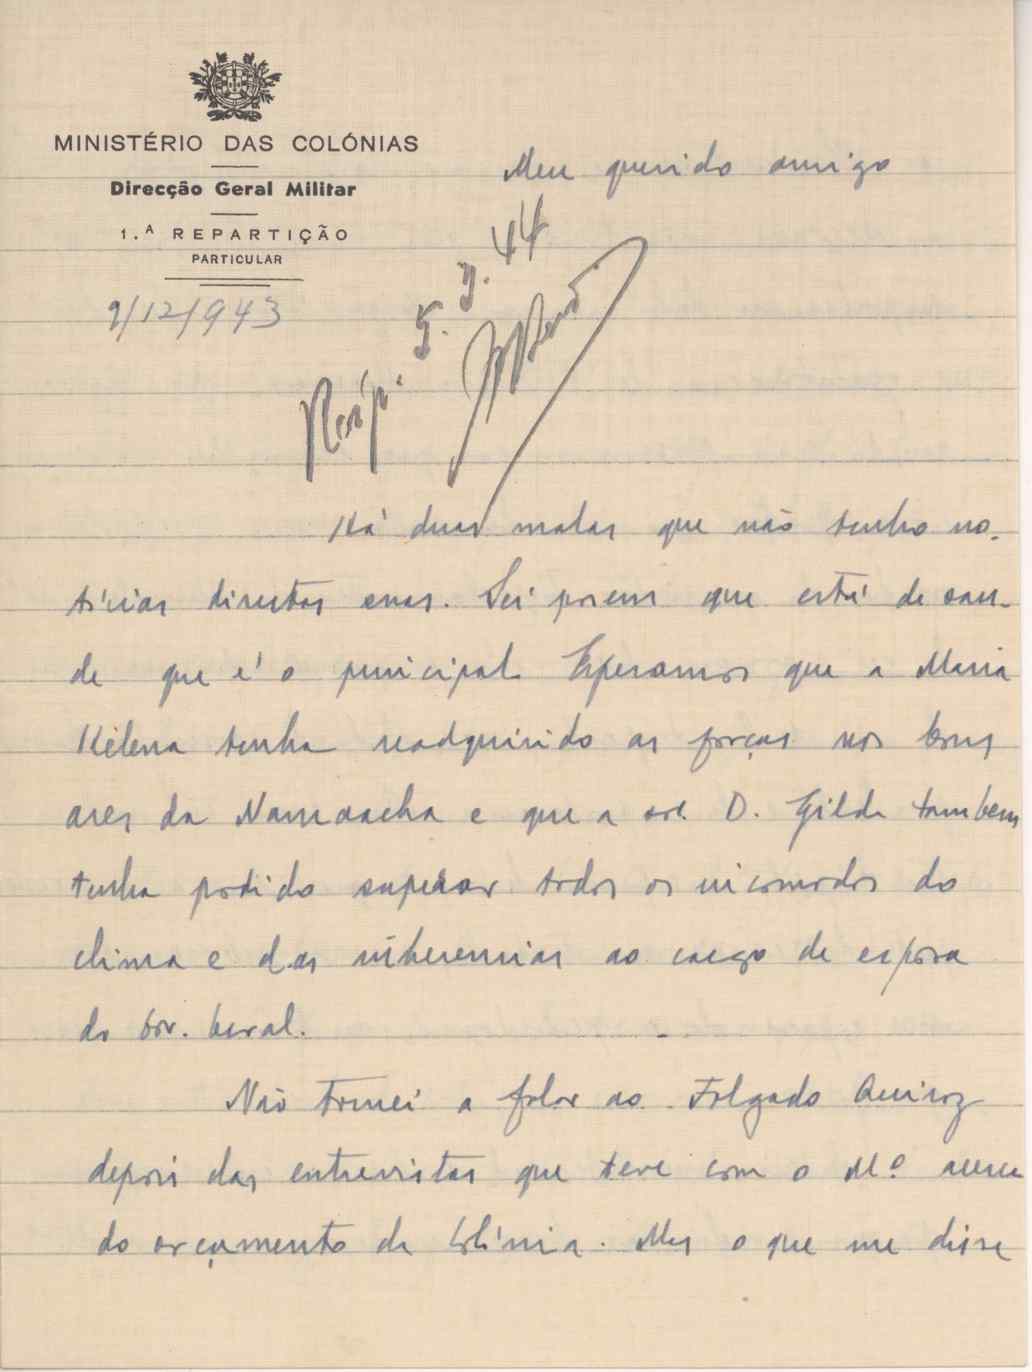 MINISTÉRIO DAS COLÓNIAS
Direcção Geral Militar
1.ª REPARTIÇÃO
PARTICULAR
9/12/943
Meu querido amigo
Resp. 5.3.44
Há duas malas que não tenho no-
tícias directas suas. Sei porem que está de sau-
de que é o principal. Esperamos que a Maria
Helena tenha readquirido as forças nos bons
ares da Namaacha e que a sr.ª D. Gilda tambem
tenha podido superar todos os incomodos do
clima e das inherencias ao cargo de esposa
do Gov. Geral.
Não tornei a falar ao Folgado Queiroz
depois das entrevistas que teve com o M.º acerca
do orçamento da Colónia. Mas o que me disse